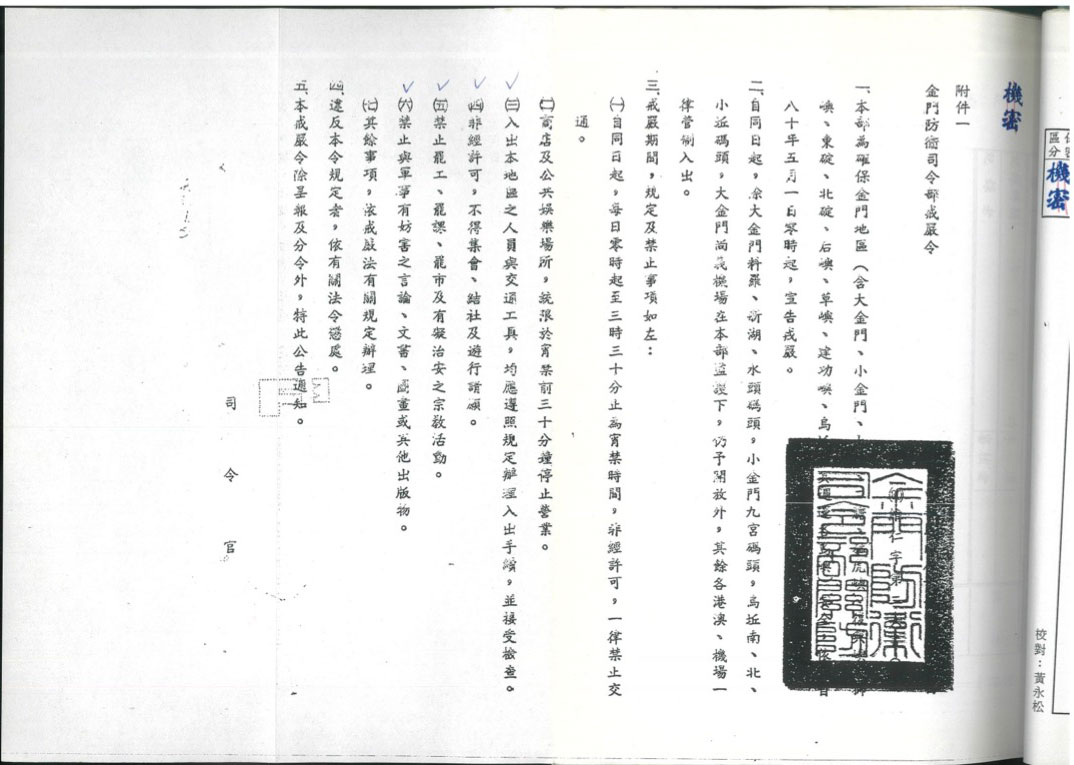 機密
附件一
金門防衛司令部戒嚴令
仁字第
一、本部為確保金門地區（含大金門、小金門、
嶼、東碇、北碇、后嶼、草嶼、建功嶼、烏坵
八十年五月一日零時起，宣告戒嚴。
二、自同日起，除大金門料羅、新湖、水頭碼頭，小金門九宮碼頭，烏坵南、北、
小坵碼頭，大金門尚義機場在本部監護下，仍予開放外，其餘各港澳、機場一
律管制入出。
三、戒嚴期間，規定及禁止事項如左：
㈠自同日起，每日零時起至三時三十分止為宵禁時間，非經許可，一律禁止交
通。
㈡商店及公共娛樂場所，統限於宵禁前三十分鐘停止營業。
㈢入出本地區之人員與交通工具，均應遵照規定辦理入出手續，並接受檢查。
㈣非經許可，不得集會、結社及遊行請願。
㈤禁止罷工、罷課、罷市及有礙治安之宗教活動。
㈥禁止與軍事有妨害之言論、文書、圖畫或其他出版物。
㈦其餘事項，依戒嚴法有關規定辦理。
四、違反本令規定者，依有關法令懲處。
五、本戒嚴令除呈報及分令外，特此公告通知。
司令官
金門防衛司令部
區分
機密
校對：黃永松